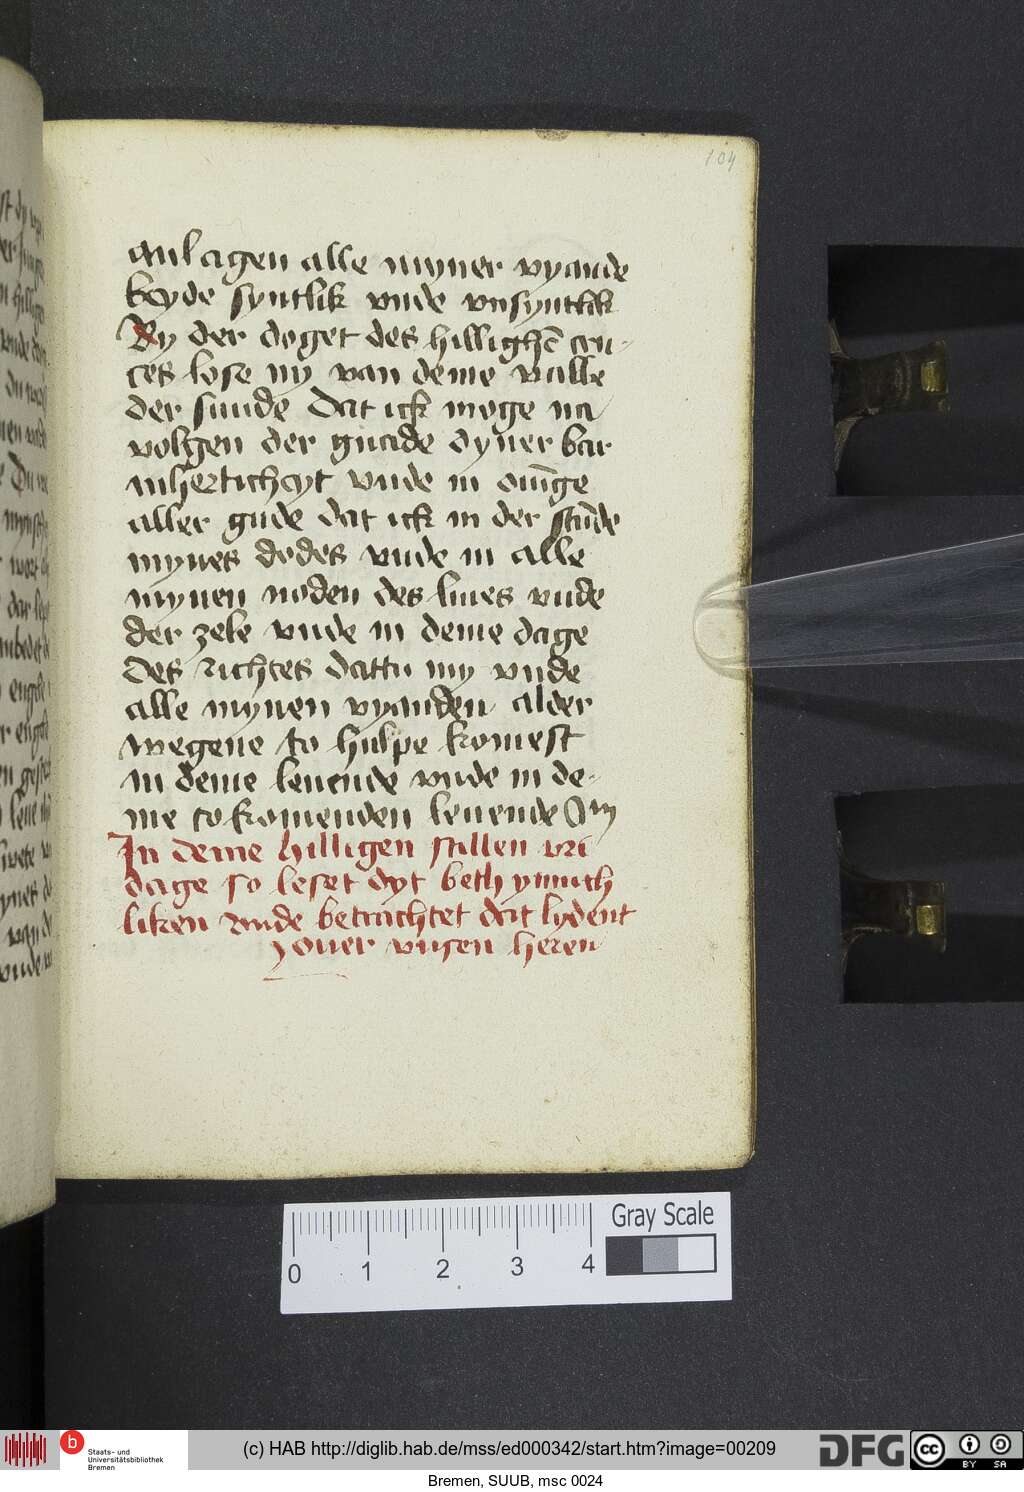 104
anlagen alle myner vyande
beyde syntlik vnde vnsyntlik
By der doget des hillighē cru-
ces lose my van deme valle
der sunde Dat ick moge na
volgen der gnade dyner bar
mherticheyt vnde in
aller gude dat ick in der stūde
mynes dodes vnde in alle
mynen noden des liues vnde
der zele vnde in deme dage
des richtes dattu my vnde
alle mynen vyanden alder
wegene to hulpe komest
in deme leuende vnde in de-
me to komenden leuende Am
In deme hilligen stillen vri
dage so leset dyt beth ynnich
liken vnde betrachtet dat lydent
ouer vnsen heren
0 1 2 3 4
Gray Scale
b
Staats- und
Universitätsbibliothek
Bremen
(c) HAB http://diglib.hab.de/mss/ed000342/start.htm?image=00209
DFG
cc BY SA
Bremen, SUUB, msc 0024